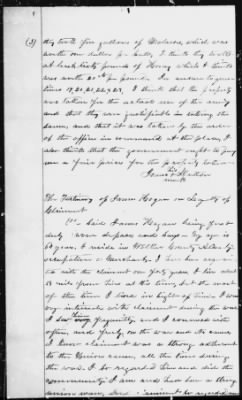 (3)
thirty five gallons of Molasses which was
worth one dollar per gallon, I think they took
at least sixty pounds of Honey which I think
was worth 20 cts per pound. In answer to ques
tions 19, 20, 21, 22, & 23, I think that the property
was taken for the actual use of the army
and that they were justifiable in taking the
same, and that it was taken by the order
of the officer in command at the place, I
also think that the government ought to pay
me a fair price for the property taken
James Walker
his
mark
The Testimony of James Hogan on Loyalty of
Claimant.
1st. Said James Hogan being first
duly sworn deposes and says - My age is
years, I reside in County
occupation a Merchant, I have been acquain
ted with the claimant years, I live about
miles from him at this time, but the most
of the time I lived in sight of him, I was
very intimate with claimant during the war
I saw him frequently, and I conversed with
often, and freely, on the war and its cause,
I know claimant was a strong adherent
to the Union cause, all the time during
the war. I so regarded him and did the
community; I am and have been a strong
Union man, and claimant so regarded me